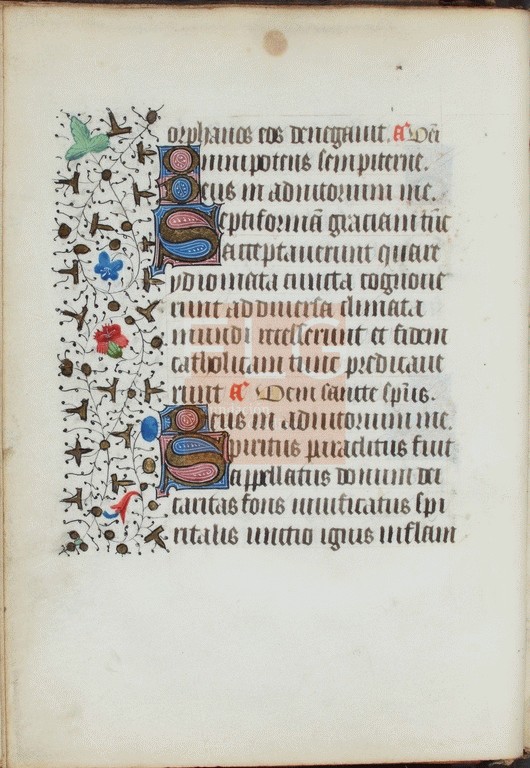 orphanos eos denegauit. A Oro
Omnipotens sempiterne.
Deus in adiutorium me.
Septiformā graciam tūc
acceptauerunt quare
ydiomata cuncta cognoue
runt ad diuersa climata
mundi recesserunt et fidem
catholicam tunc predicaue
runt A Dem sancte spūs.
Deus in adiutorium me.
Spiritus paraclitus fuit
appellatus donum dei
caritas fons uiuificatus spi
ritalis unctio ignis inflam